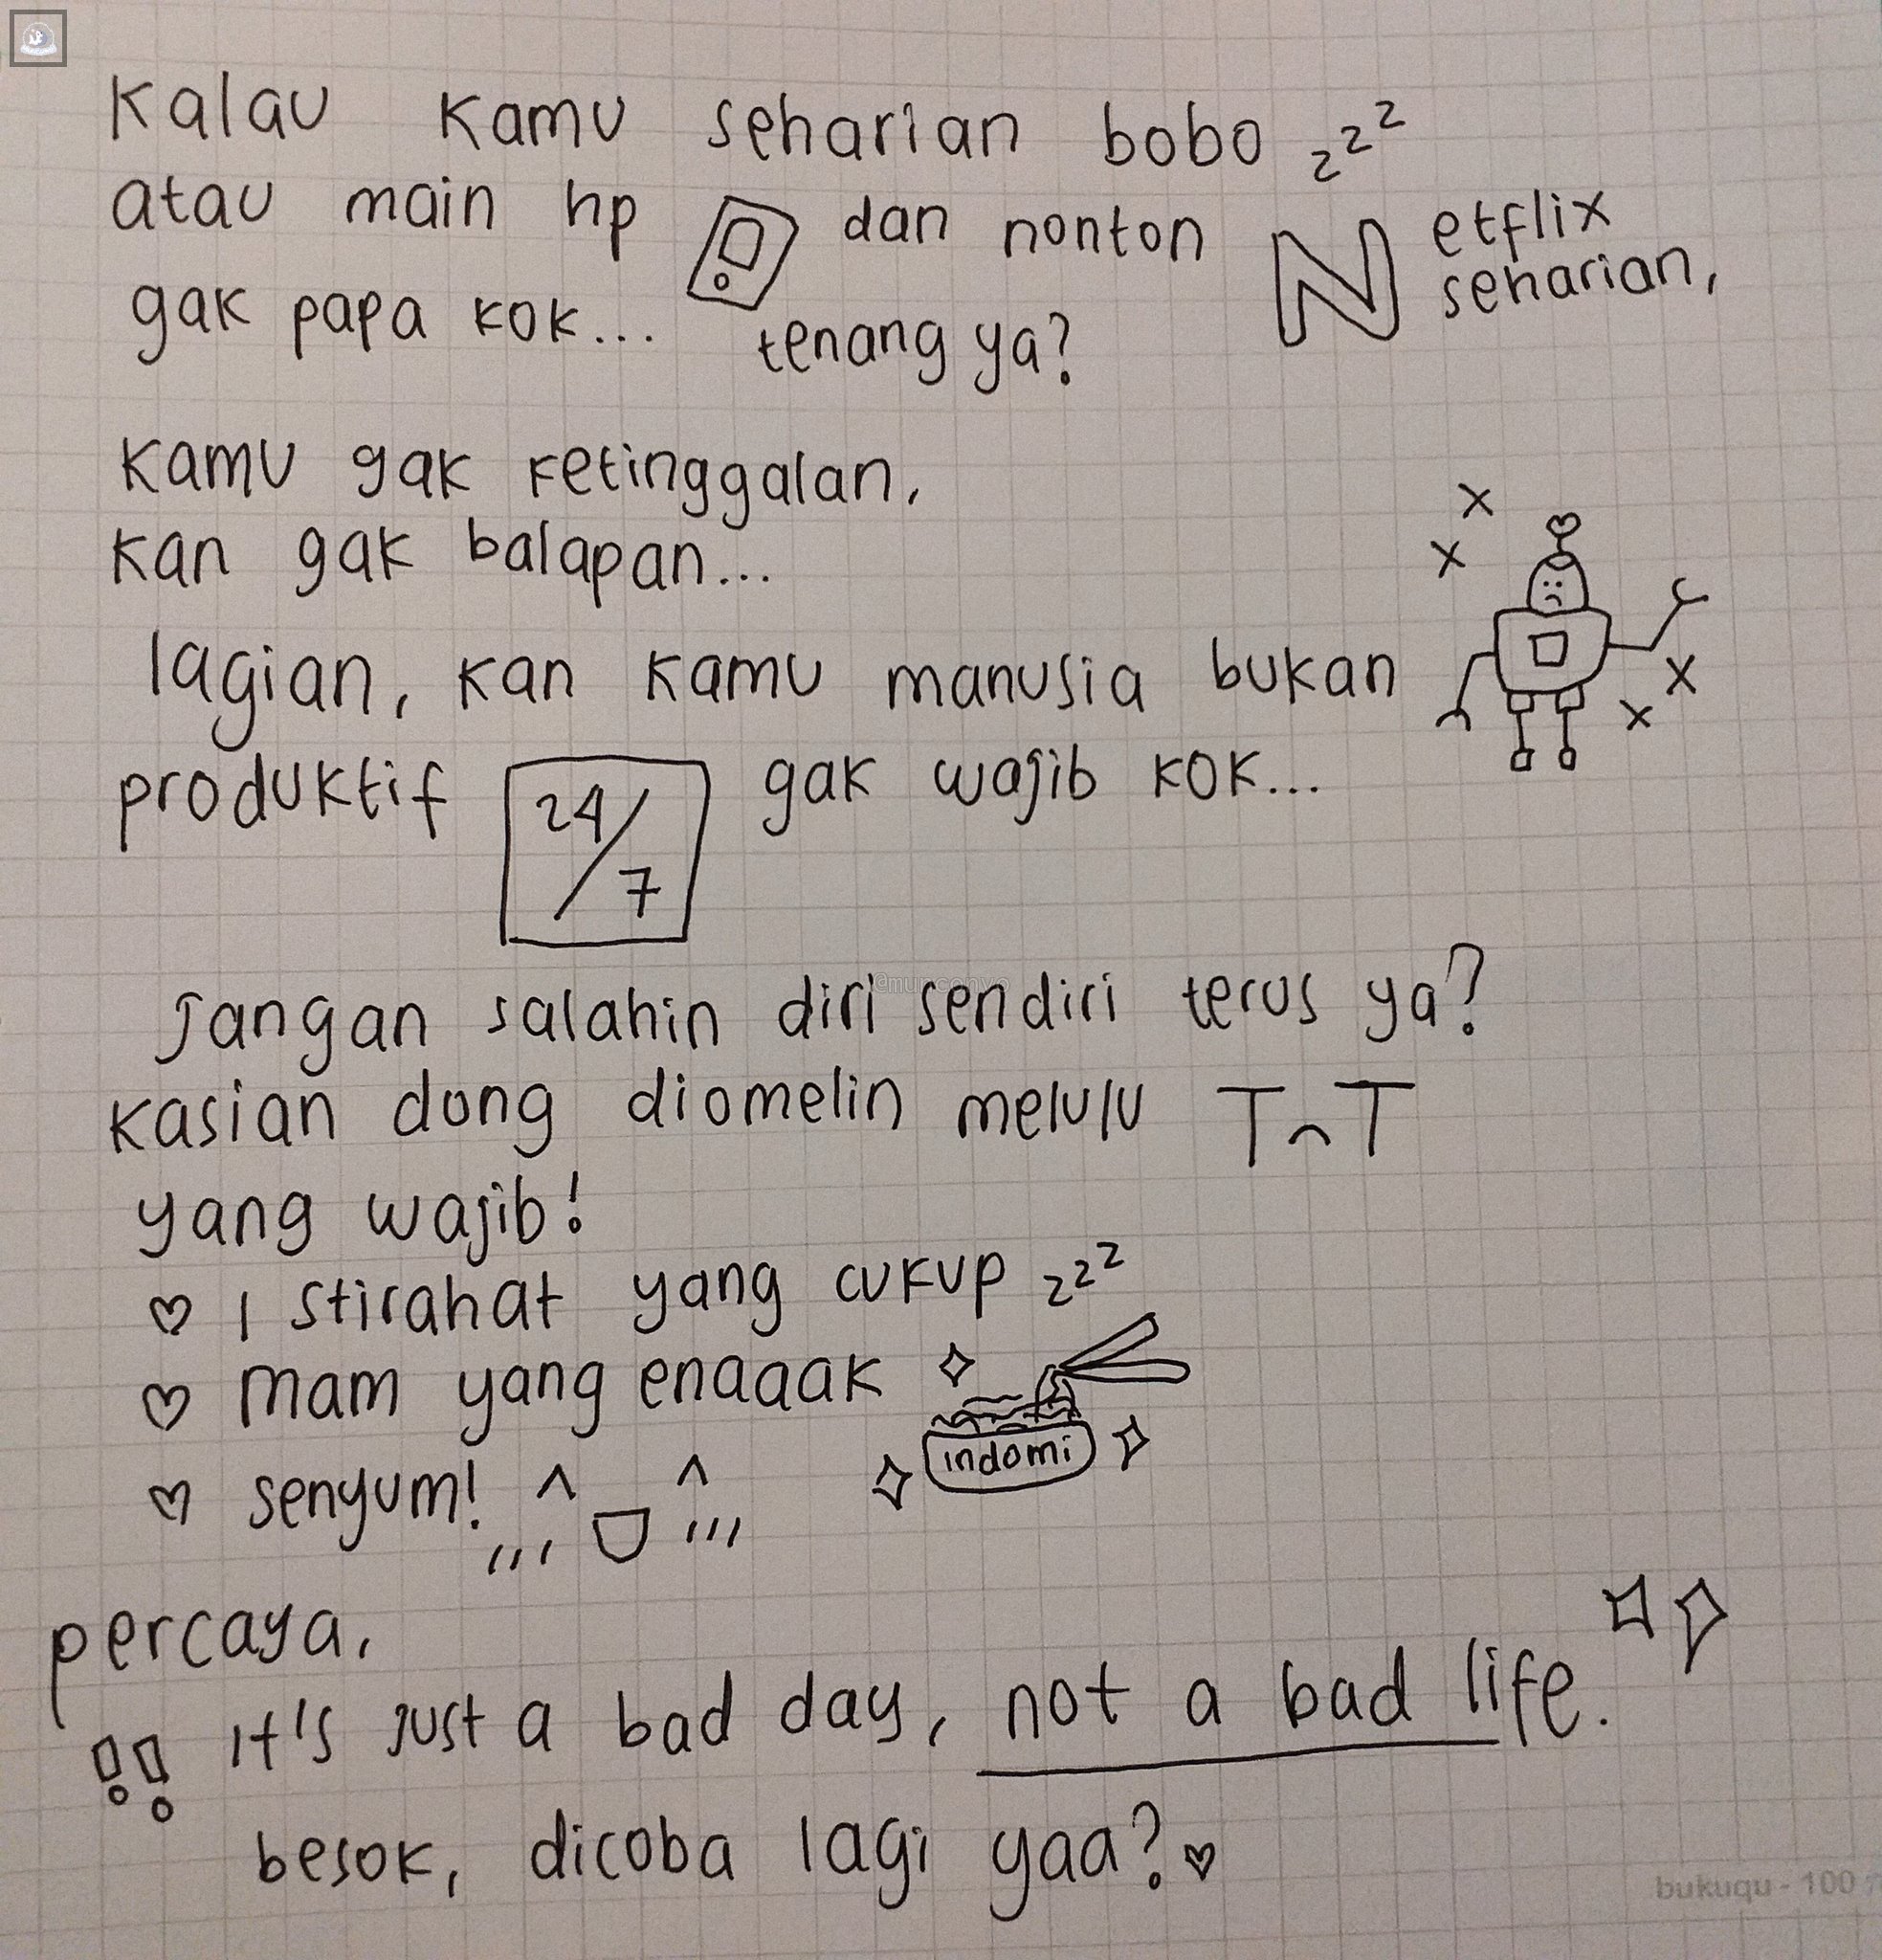 Kalau kamu seharian bobo zzz
atau main hp dan nonton Netflix
seharian,
gak papa kok... tenang ya?
kamu gak ketinggalan,
kan gak balapan...
lagian, kan kamu manusia bukan
produktif 24/7 gak wajib kok...
Jangan salahin diri sendiri terus ya?
kasian dong diomelin melulu T^T
yang wajib!
♡ Istirahat yang cukup zzz
♡ mam yang enaaak
indomi
♡ senyum!
percaya,
!! it's just a bad day, not a bad life.
besok, dicoba lagi yaa? ♡
bukuqu - 100